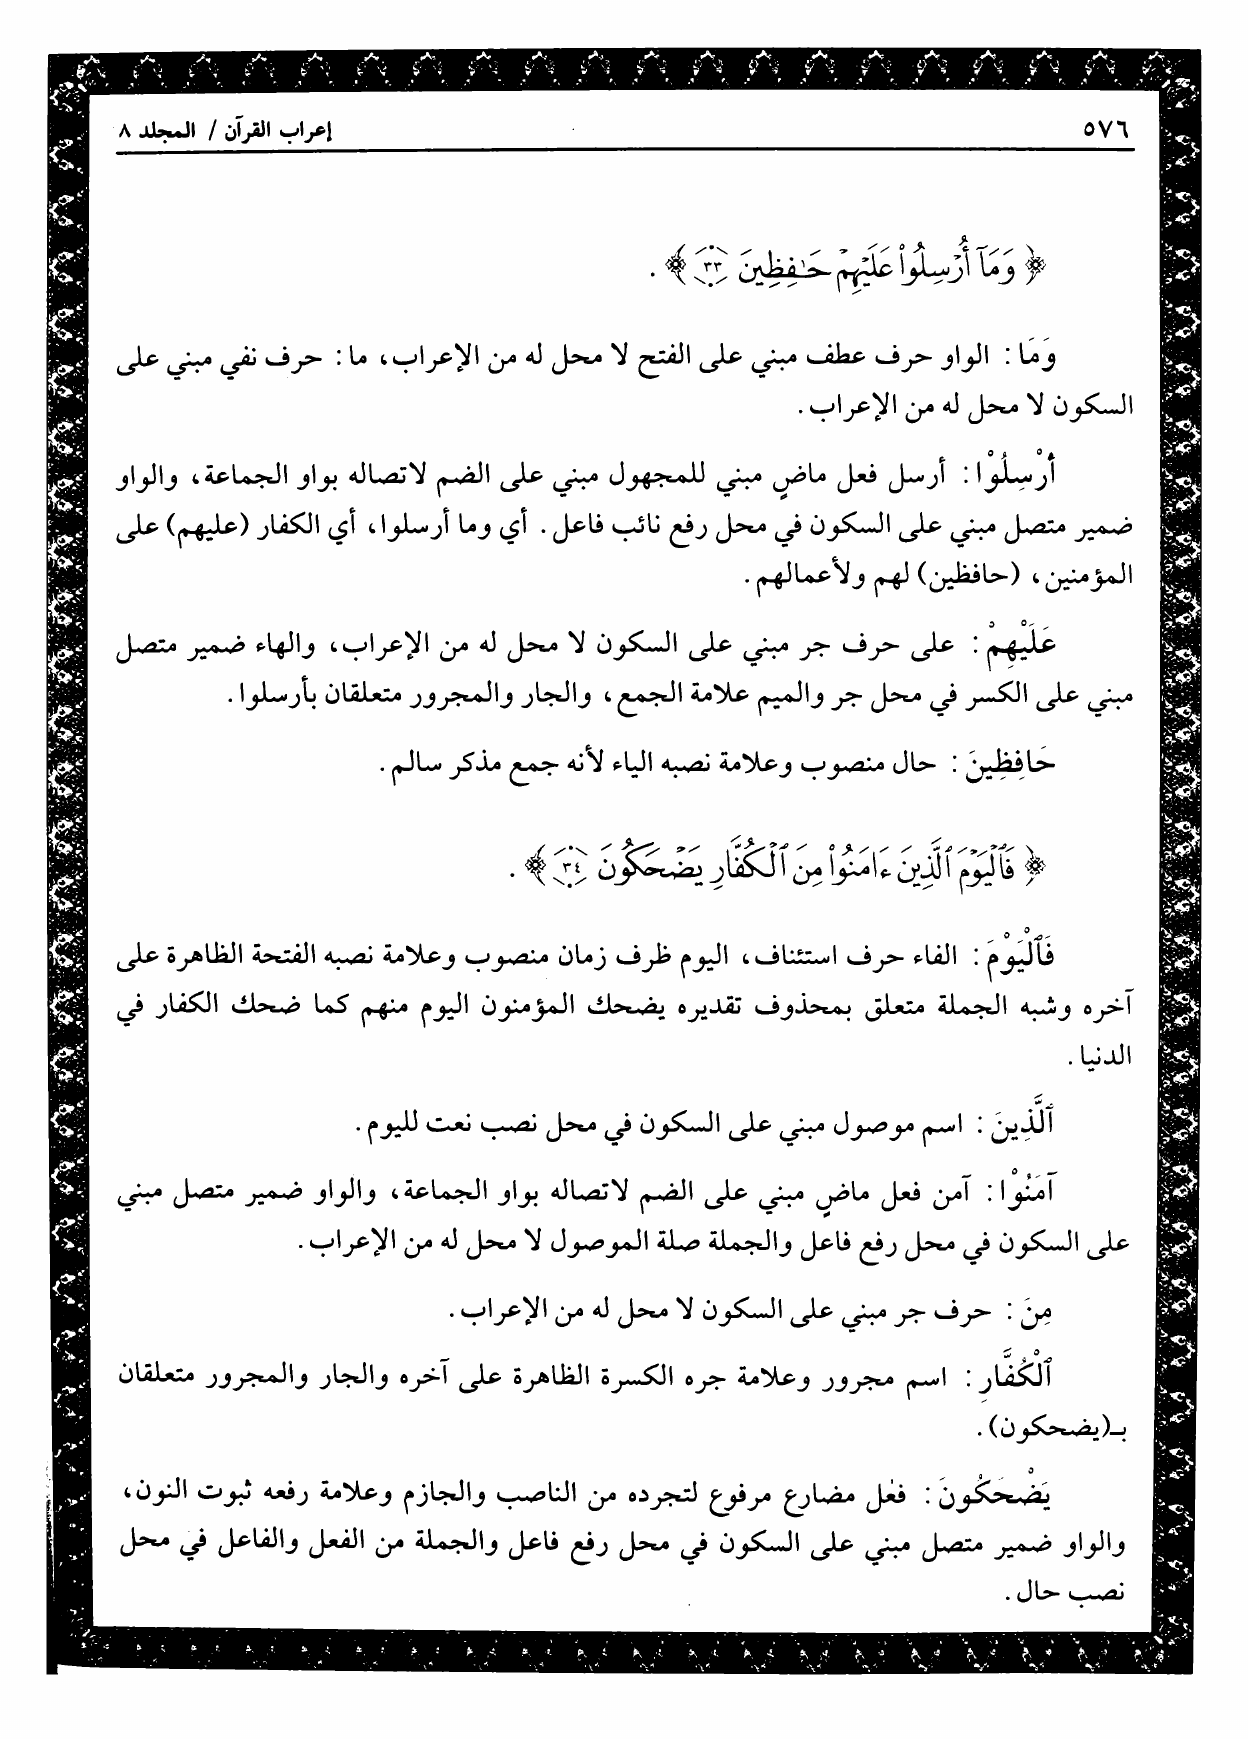 ٥٧٦
إعراب القرآن / المجلد ٨
﴿ وَمَآ أُرْسِلُوا۟ عَلَيْهِمْ حَـٰفِظِينَ ٣٣ ﴾ .
وَمَا : الواو حرف عطف مبني على الفتح لا محل له من الإعراب، ما : حرف نفي مبني على
السكون لا محل له من الإعراب.
أُرْسِلُوْا : أرسل فعل ماضٍ مبني للمجهول مبني على الضم لاتصاله بواو الجماعة، والواو
ضمير متصل مبني على السكون في محل رفع نائب فاعل . أي وما أرسلوا، أي الكفار (عليهم) على
المؤمنين، (حافظين) لهم ولأعمالهم.
عَلَيْهِمْ : على حرف جر مبني على السكون لا محل له من الإعراب، والهاء ضمير متصل
مبني على الكسر في محل جر والميم علامة الجمع، والجار والمجرور متعلقان بأرسلوا.
حَافِظِينَ : حال منصوب وعلامة نصبه الياء لأنه جمع مذكر سالم.
﴿ فَٱلْيَوْمَ ٱلَّذِينَ ءَامَنُوا۟ مِنَ ٱلْكُفَّارِ يَضْحَكُونَ ٣٤ ﴾ .
فَٱلْيَوْمَ : الفاء حرف استئناف، اليوم ظرف زمان منصوب وعلامة نصبه الفتحة الظاهرة على
آخره وشبه الجملة متعلق بمحذوف تقديره يضحك المؤمنون اليوم منهم كما ضحك الكفار في
الدنيا .
ٱلَّذِينَ : اسم موصول مبني على السكون في محل نصب نعت لليوم.
آمَنُوْا : آمن فعل ماضٍ مبني على الضم لاتصاله بواو الجماعة، والواو ضمير متصل مبني
على السكون في محل رفع فاعل والجملة صلة الموصول لا محل له من الإعراب.
مِنَ : حرف جر مبني على السكون لا محل له من الإعراب.
ٱلْكُفَّارِ : اسم مجرور وعلامة جره الكسرة الظاهرة على آخره والجار والمجرور متعلقان
بـ(يضحكون) .
يَضْحَكُونَ : فعل مضارع مرفوع لتجرده من الناصب والجازم وعلامة رفعه ثبوت النون،
والواو ضمير متصل مبني على السكون في محل رفع فاعل والجملة من الفعل والفاعل في محل
نصب حال .